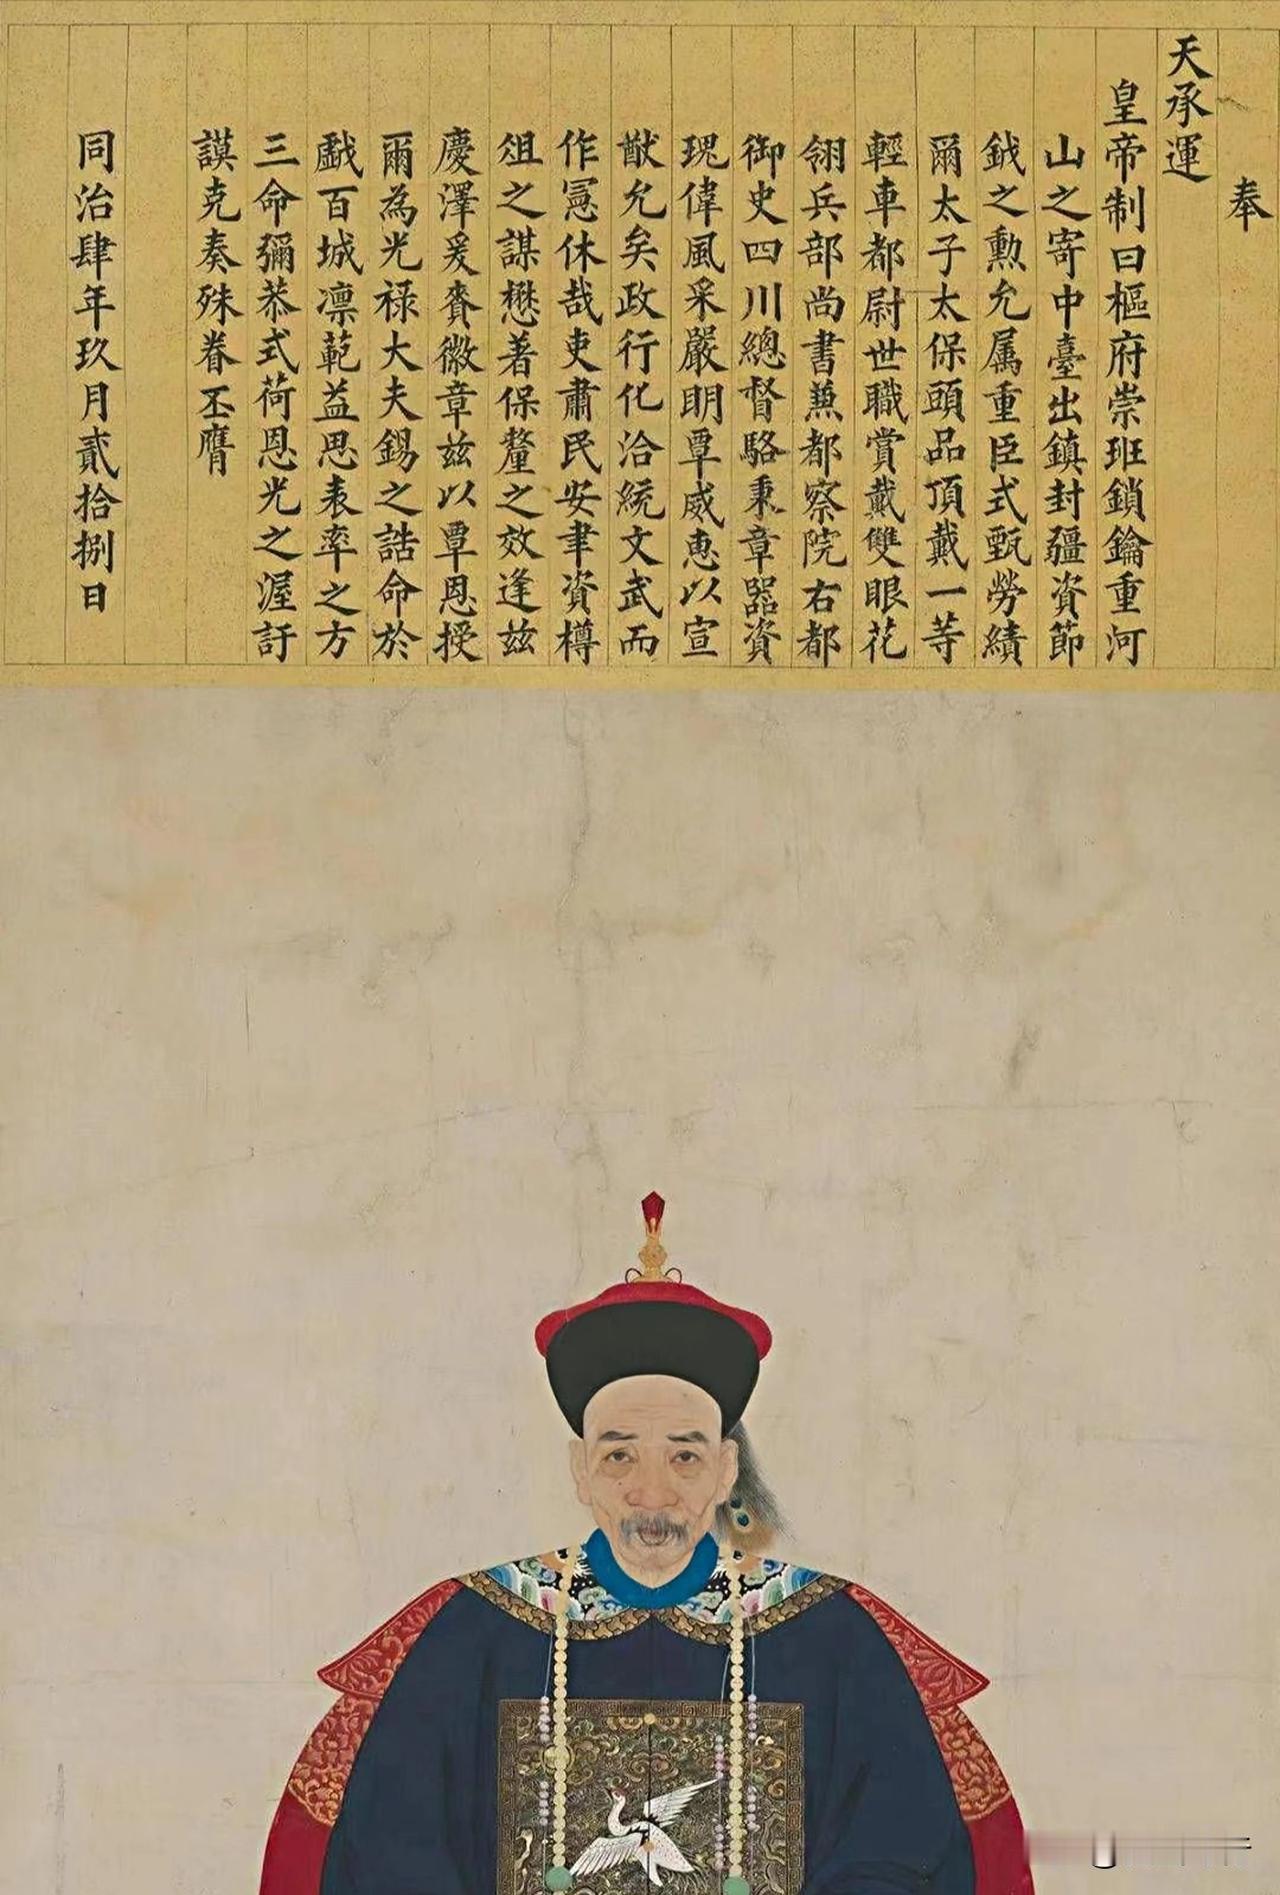 奉
天承運
皇帝制曰樞府崇班鎖鑰重河
山之寄中臺出鎮封疆資節
鉞之勲允属重臣式甄勞績
爾太子太保頭品頂戴一等
輕車都尉世職賞戴雙眼花
翎兵部尚書兼都察院右都
御史四川總督駱秉章器資
瑰偉風采嚴明覃威惠以宣
猷允矣政行化洽統文武而
作憲休哉吏肅民安聿資樽
俎之謀懋著保釐之效逢兹
慶澤爰賚徽章兹以覃恩授
爾為光禄大夫錫之誥命於
戲百城凛範益思表率之方
三命彌恭式荷恩光之渥訏
謨克奏殊眷丕膺
同治肆年玖月貳拾捌日